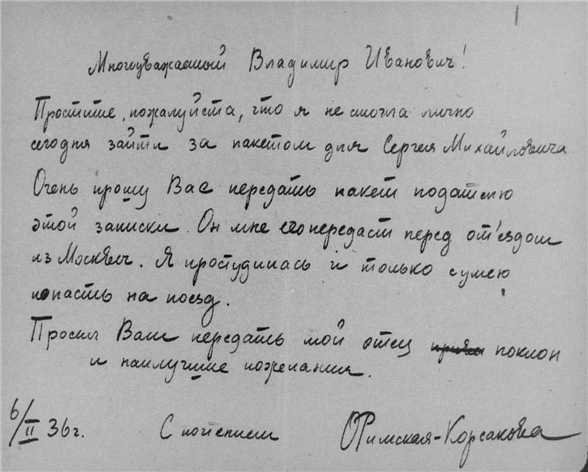 Многоуважаемый Владимир Иванович!
Простите, пожалуйста, что я не смогла лично
сегодня зайти за пакетом для Сергея Михайловича
Очень прошу Вас передать пакет подателю
этой записки. Он мне его передаст перед от'ездом
из Москвы. Я простудилась и только сумею
попасть на поезд.
Просил Вам передать мой отец поклон
и наилучшие пожелания.
6/II 36г. С почтением ОРимская-Корсакова